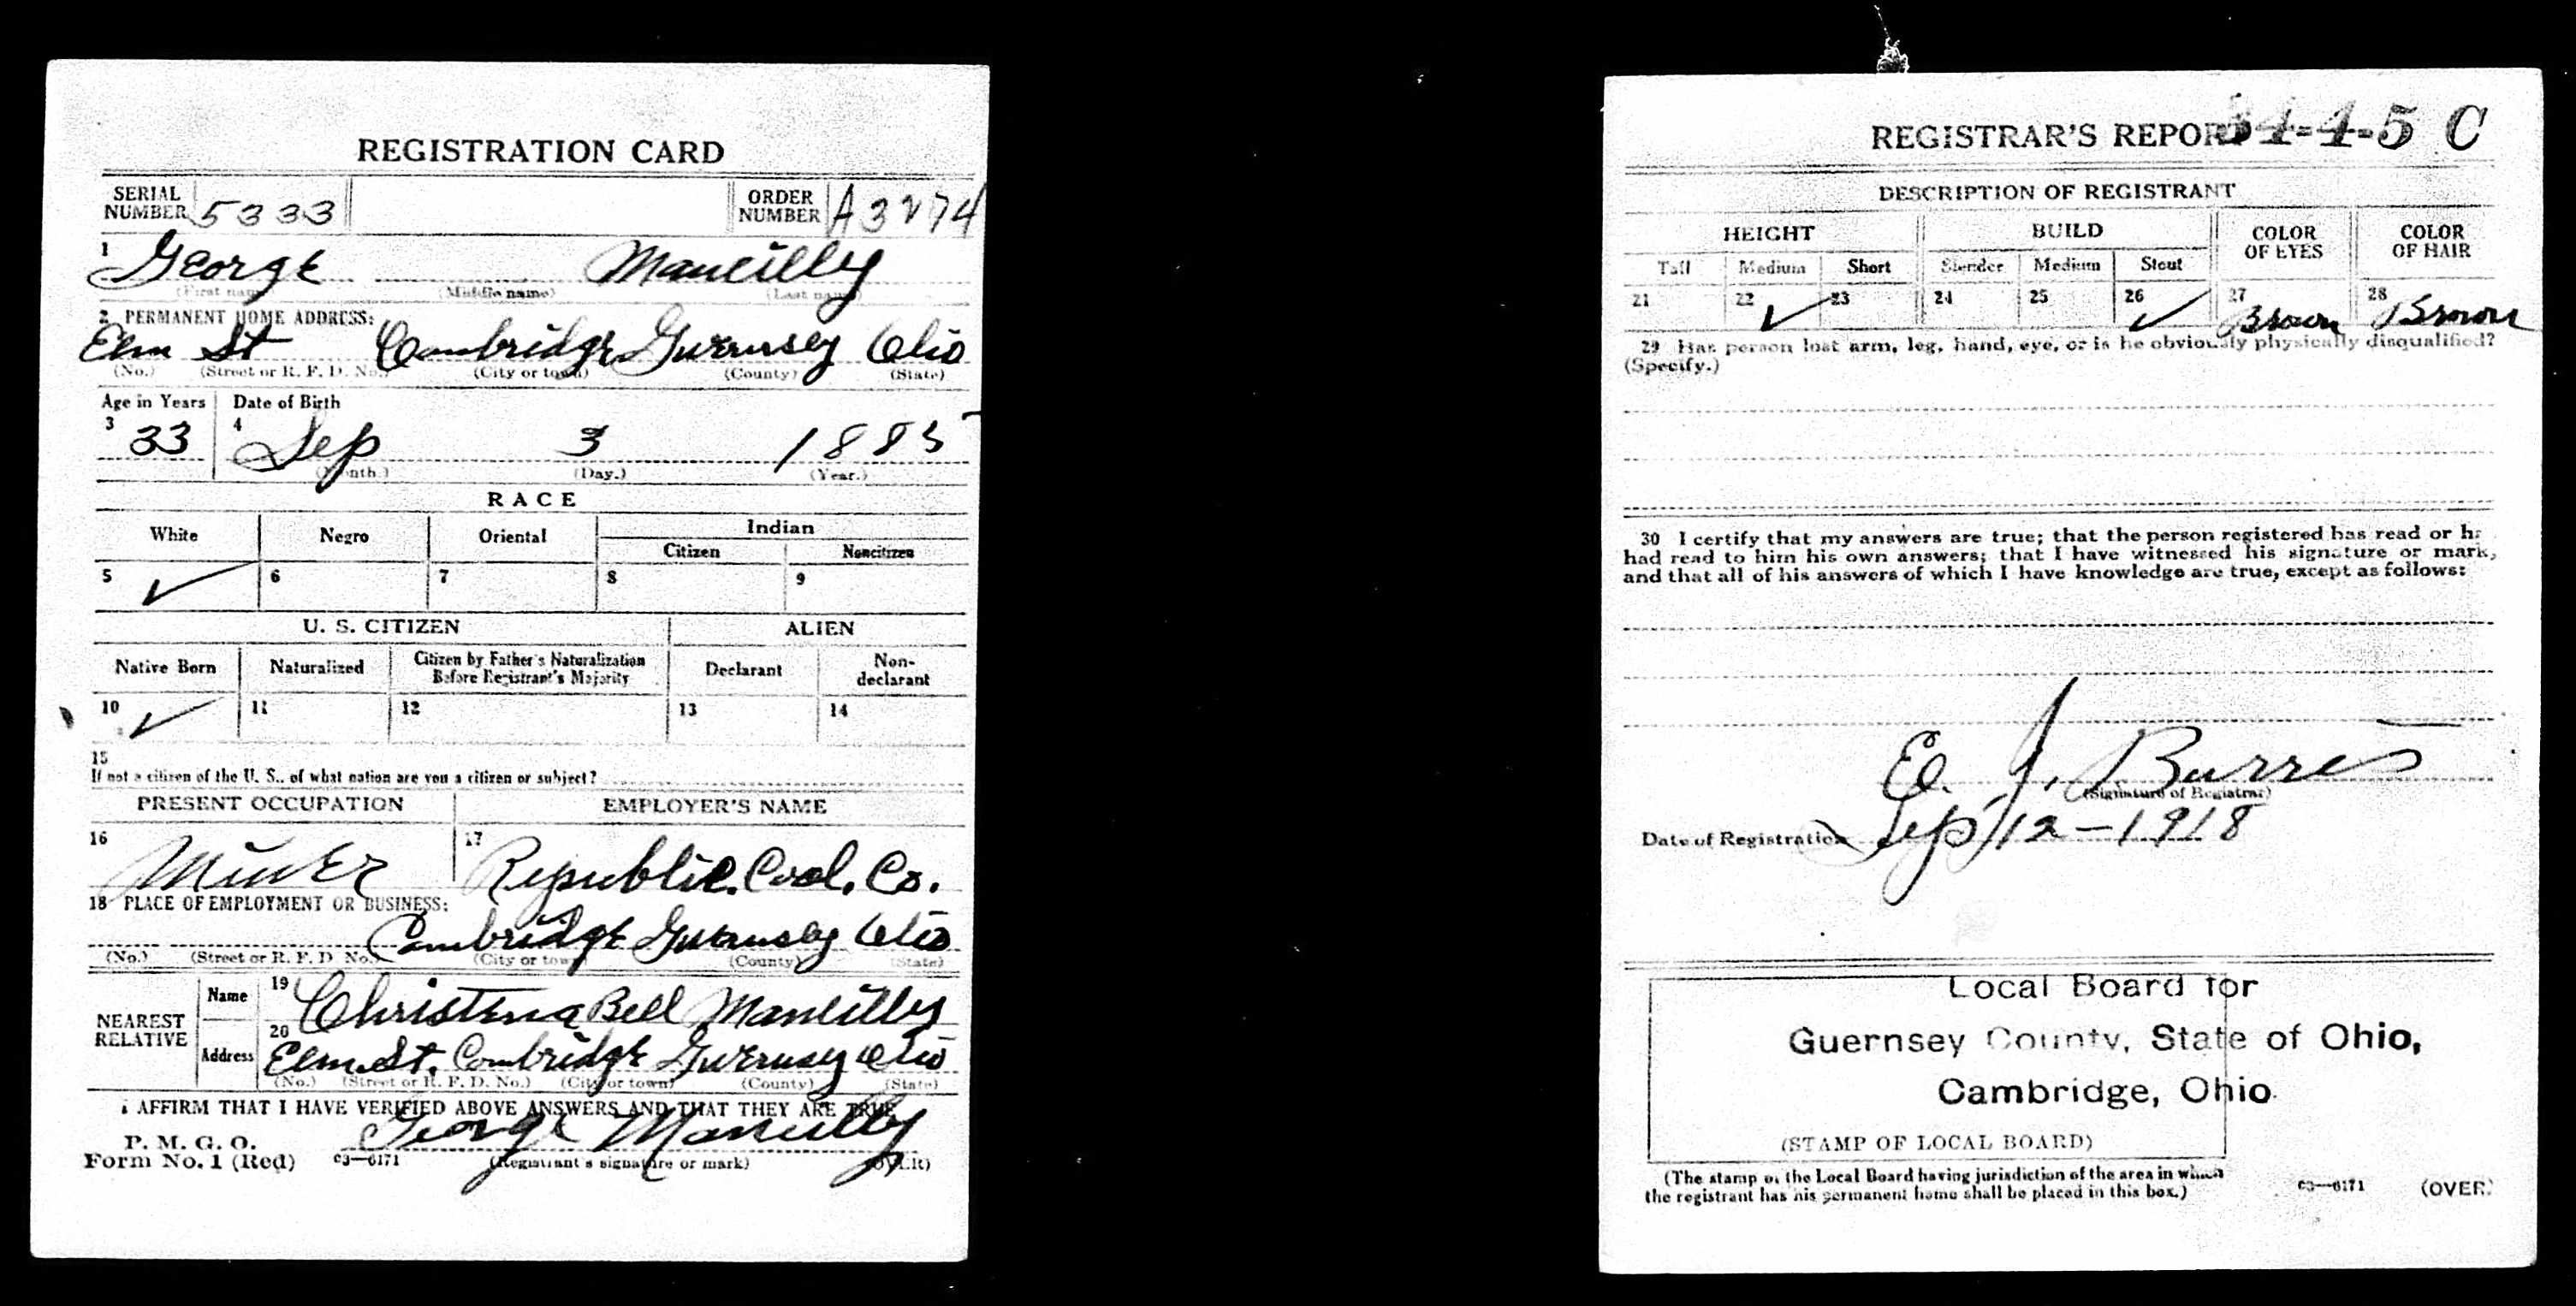 REGISTRATION CARD
SERIAL NUMBER 5333
ORDER NUMBER A3274
1 George Maneilly
(First name) (Middle name) (Last name)
2 PERMANENT HOME ADDRESS:
Elm St Cambridge Guernsey Ohio
(No.) (Street or R. F. D. No.) (City or town) (County) (State)
Age in Years Date of Birth
3 33 4 Sep 3 1885
(Month.) (Day.) (Year.)
RACE
White Negro Oriental Indian
Citizen Noncitizen
5 ✓ 6 7 8 9
U. S. CITIZEN ALIEN
Native Born Naturalized Citizen by Father's Naturalization Before Registrant's Majority Declarant Non-declarant
10 ✓ 11 12 13 14
15
If not a citizen of the U. S., of what nation are you a citizen or subject?
PRESENT OCCUPATION EMPLOYER'S NAME
16 Miner 17 Republic. Coal. Co.
18 PLACE OF EMPLOYMENT OR BUSINESS:
Cambridge Guernsey Ohio
(No.) (Street or R. F. D. No.) (City or town) (County) (State)
NEAREST RELATIVE
Name 19 Christena Bell Maneilly
Address 20 Elm St. Cambridge Guernsey Ohio
(No.) (Street or R. F. D. No.) (City or town) (County) (State)
I AFFIRM THAT I HAVE VERIFIED ABOVE ANSWERS AND THAT THEY ARE TRUE
P. M. G. O.
Form No. 1 (Red) 03—6171 George Maneilly
(Registrant's signature or mark) (OVER)
REGISTRAR'S REPORT 34-4-5 C
DESCRIPTION OF REGISTRANT
HEIGHT BUILD COLOR OF EYES COLOR OF HAIR
Tall Medium Short Slender Medium Stout
21 22 ✓ 23 24 25 26 ✓ 27 Brown 28 Brown
29 Has person lost arm, leg, hand, eye, or is he obviously physically disqualified?
(Specify.)
30 I certify that my answers are true; that the person registered has read or h
had read to him his own answers; that I have witnessed his signature or mark,
and that all of his answers of which I have knowledge are true, except as follows:
Ed. J. Burres
(Signature of Registrar)
Date of Registration Sep 12-1918
Local Board for
Guernsey County, State of Ohio,
Cambridge, Ohio.
(STAMP OF LOCAL BOARD)
(The stamp of the Local Board having jurisdiction of the area in which
the registrant has his permanent home shall be placed in this box.)
03—6171 (OVER)